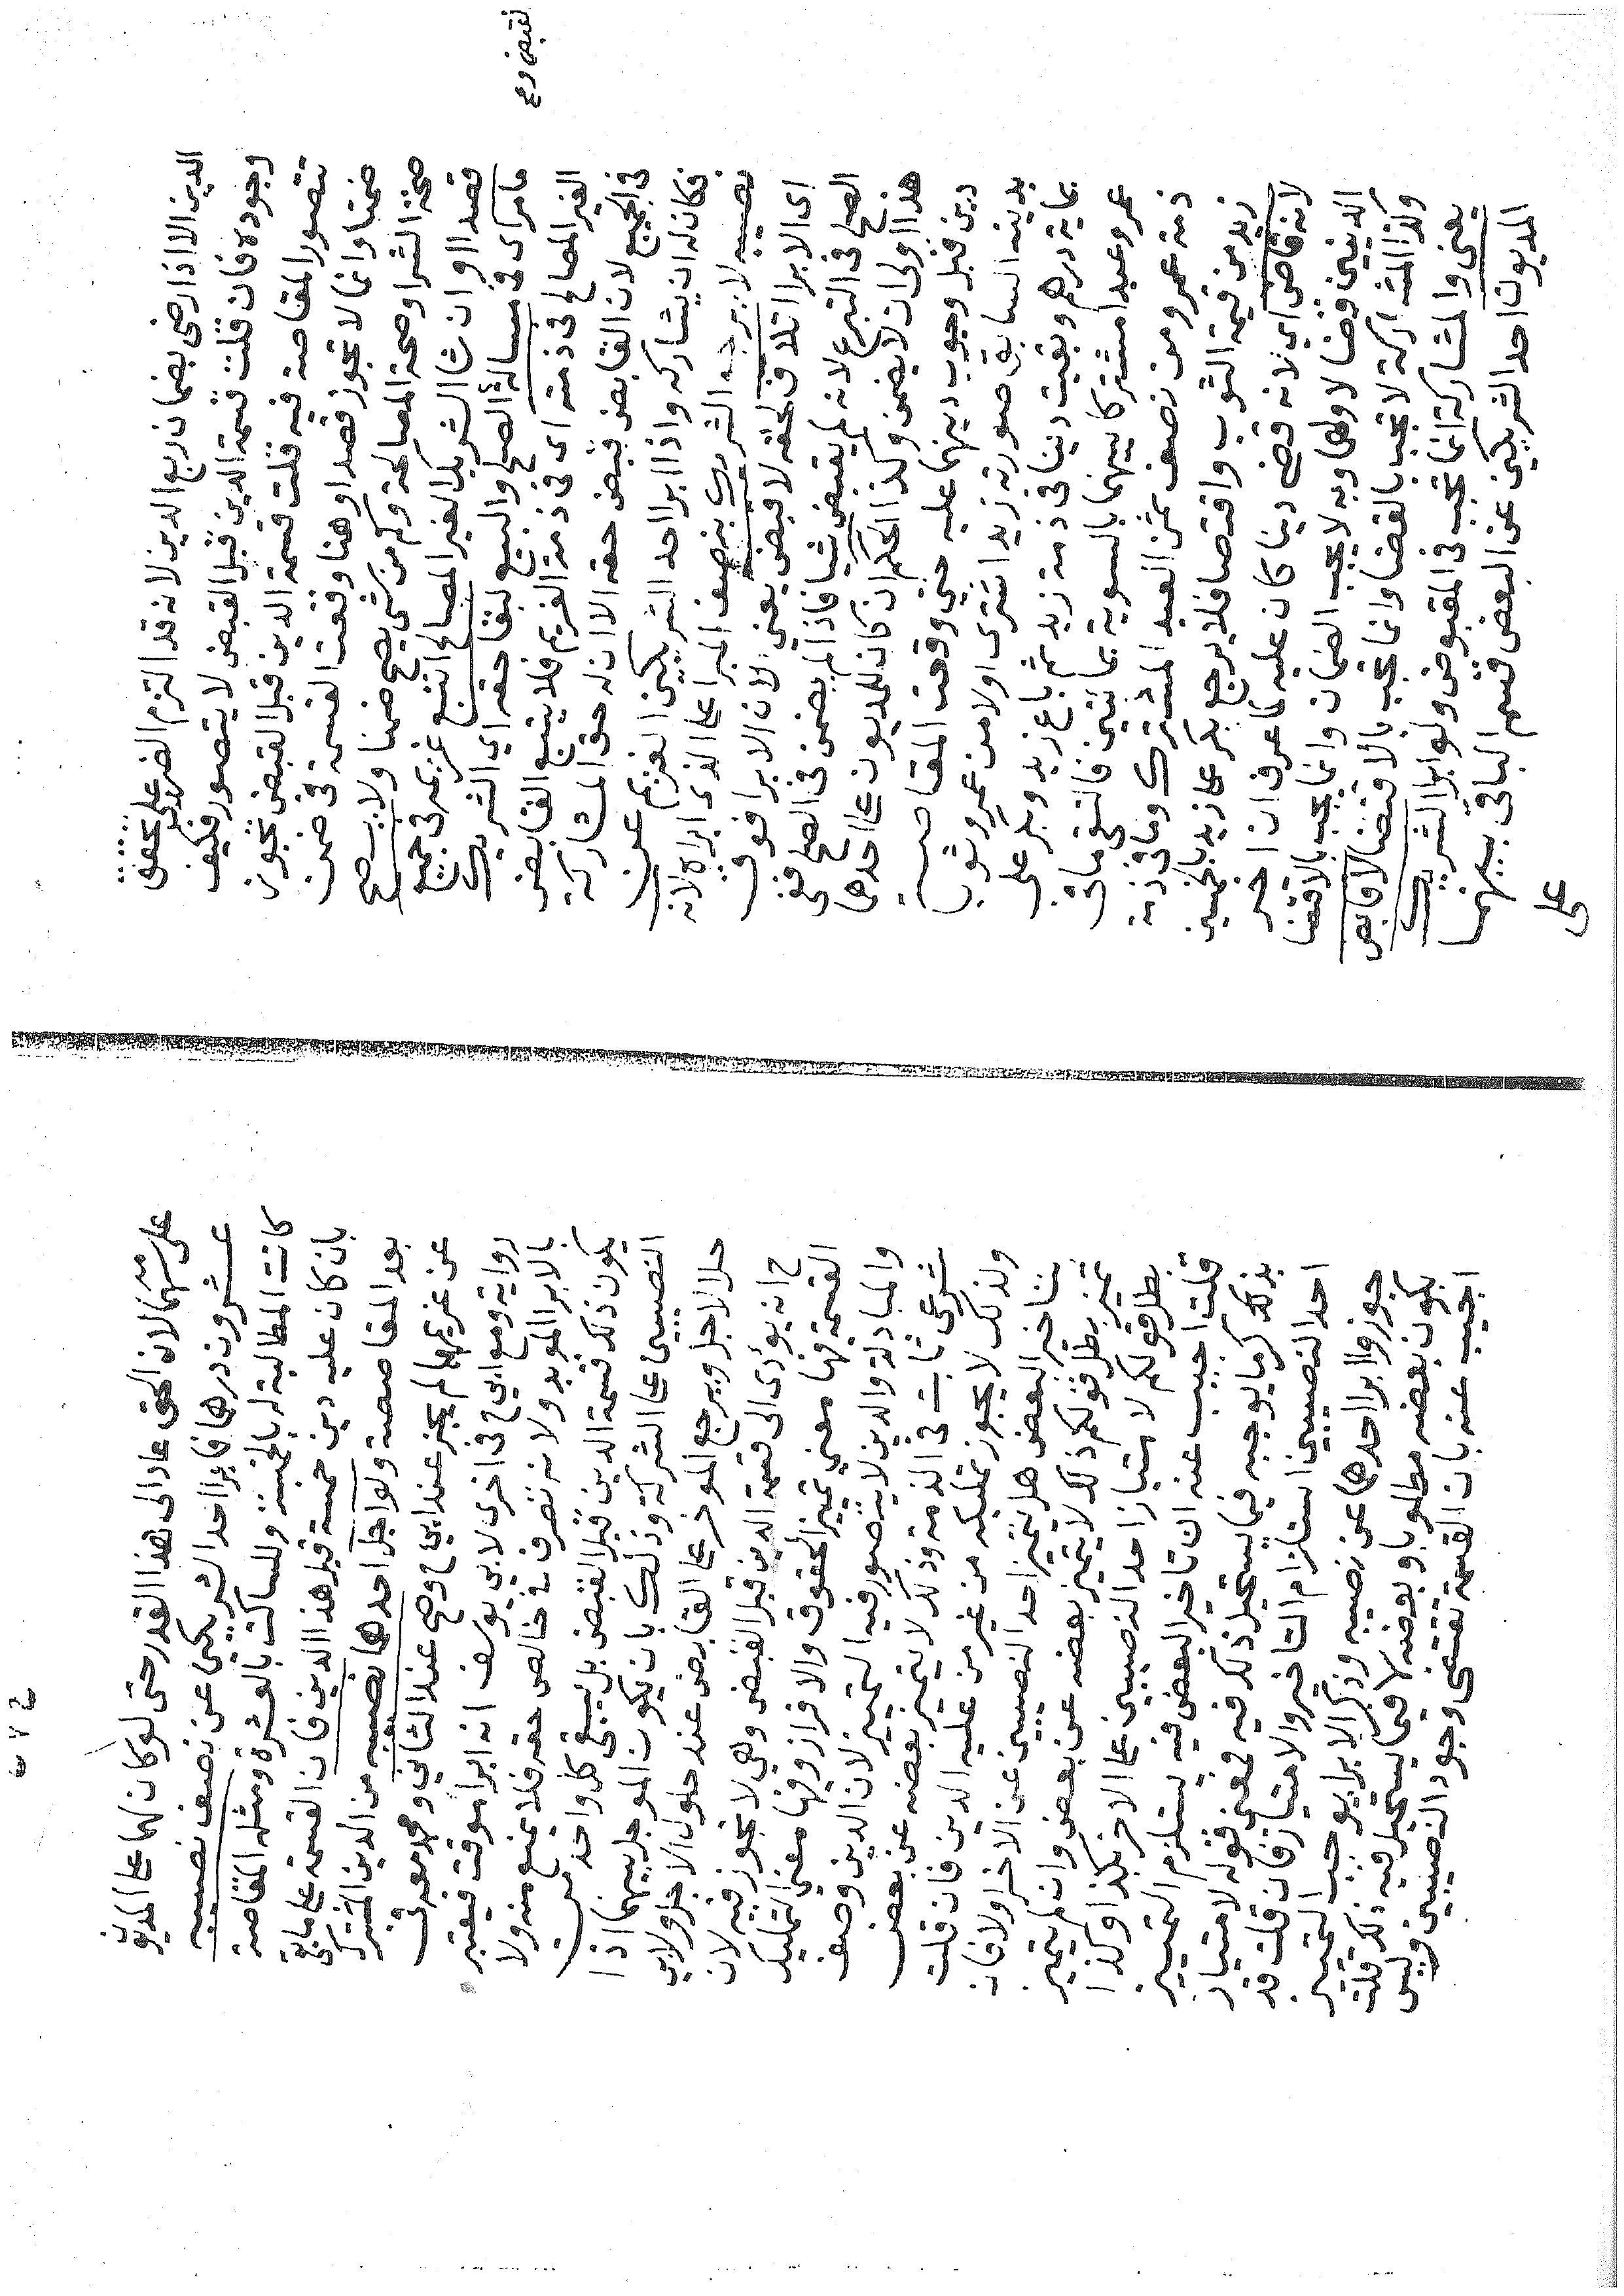 الدين الا اذا رضى بضمان ربع الدين لانه قد التزم الضرر على تحقق
وجوده فان قلت قسمة الدين قبل القبض لا يتصور فكيف
تتصور المقاصة فيه قلت قسمة الدين قبل القبض تجوز
ضمنا وانما لا تجوز قصدا وهنا وقعت القسمة في ضمن
صحة الشرا وصحة المصالحة وكم من شي يصح ضمنا ولا يصح
قصدا وان شا الشريك الغير المصالح اتبع غريمه في جميع
ما مر اى في مسالة الصلح والبيع لبقا حقه اي الشريك
الغير المصالح في ذمته اى في ذمة الغريم فلا يتبع القابض
في الجميع لان القابض قبض حقه الا ان له حق المشاركة
فكان له ان يشاركه واذا ابرا احد الشريكين الغريم عن
نصيبه لا يرجع الشريك بنصف المبرا على الذى ابراه لانه
اى الابرا اتلاف لحقه لا قبض يعني لان الابرا فوق
الصلح في التبرع لانه لم يقبض شيا فاذا لم يضمن في الصلح ففى
هذا اولى ان لا يضمن وكذا الحكم ان كان للمديون على احدهما
دين قبل وجوب دينهما عليه حتى وقعت المقاصة
بدينه السابق صورته زيد اشترى اولا من عمرو ثوبا
بماية درهم وبقيت دينا في ذمة زيد ثم باع زيد وبكر على
عمرو عبدا مشتركا بينهما بالسوية بمائتين فالتقى ما في
ذمة عمرو من نصف ثمن العبد المشترك وما في ذمة
زيد من قيمة الثوب واقتصا فلا يرجع بكر على زيد بالخمسين
لانه قاض اي لانه قضى دينا كان عليه لما عرف ان اخر
الدينين قضا لاولهما وبه لا يجب الضمان وانما يجب بالاقتضا
وكذا المشاركة لا تجب بالقضا وانما تجب بالاقتضا لا قابض
يعني والمشاركة انما تجب في المقبوض ولو ابرا الشريك
المديون احد الشريكين عن البعض قسم الباقي بينهما
على
تقبض وع
على سهمها لان الحق عاد الى هذا القدر حتى لو كان لهما على المديون
عشرون درهما فابرا احد الشريكين عن نصف نصيبه
كانت المطالبة له بالخمسة وللساكت بالعشرة ومثله المقاصة
بان كان عليه دين خمسة قبل هذا الدين فان القسمة على ما بقي
بعد المقاصصة ولو اجل احدهما نصيبه من الدين المشترك
عن غريمهما لم يجز عند ابي ح وصح عند الثاني ومحمد معه في
رواية ومع ابي ح في اخرى لابي يوسف انه ابرا موقت فيعتبر
بالابرا الموبد ولانه تصرف في خالص حقه فلا يمنع منه ولا
يكون ذلك قسمة الدين قبل القبض بل يبقى كل واحد من
النصيبين على الشركة وذلك بان يكون الموجل بينهما اذا
حلا لاجل ويرجع الموخر على القابض عند حلول الاجل ولابي
ح انه يؤدى الى قسمة الدين قبل القبض وهي لا تجوز فيه لان
القسمة فيها معني تمييز الحقوق والافراز وفيها معني التمليك
والمبادلة والدين لا يتصور فيه التمييز لان الدين وصف
شرعي ثابت في الذمة وذلك لا يتميز بعضه عن بعض
ولذلك لا يجوز تمليكه من غير من عليه الدين فان قلت
تاخير البعض هل تميز احد النصيبين عن الاخر ولا فان
تميز بطل قولكم ذلك لا يتميز بعضه عن بعض وان لم يتميز
بطل قولكم لامتياز احد النصيبين على الاخر بكذا وكذا
قلت اجيب عنه ان تاخير البعض فيه يستلزم التمييز
بذكر ما يوجبه فيما يستحيل ذلك فيه فمعنى قوله لامتياز
احد النصيبين استلزام التاخير والامتياز فان قلت قد
جوزوا ابرا احدهما عن نصيبه وذكر الابرا يوجب التمييز
بكون بعضه مطلوبا وبعضه لا فيما يستحيل فيه ذلك قلت
اجيب عنه بان القسمة تقتضى وجود النصيبين وليس